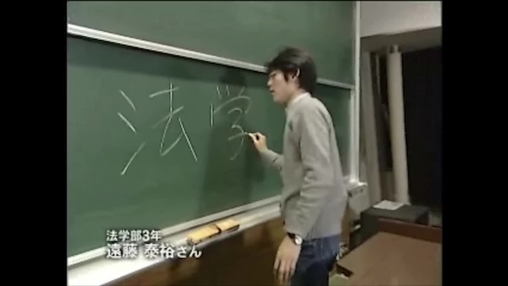 法学
法学部3年
遠藤 泰裕さん